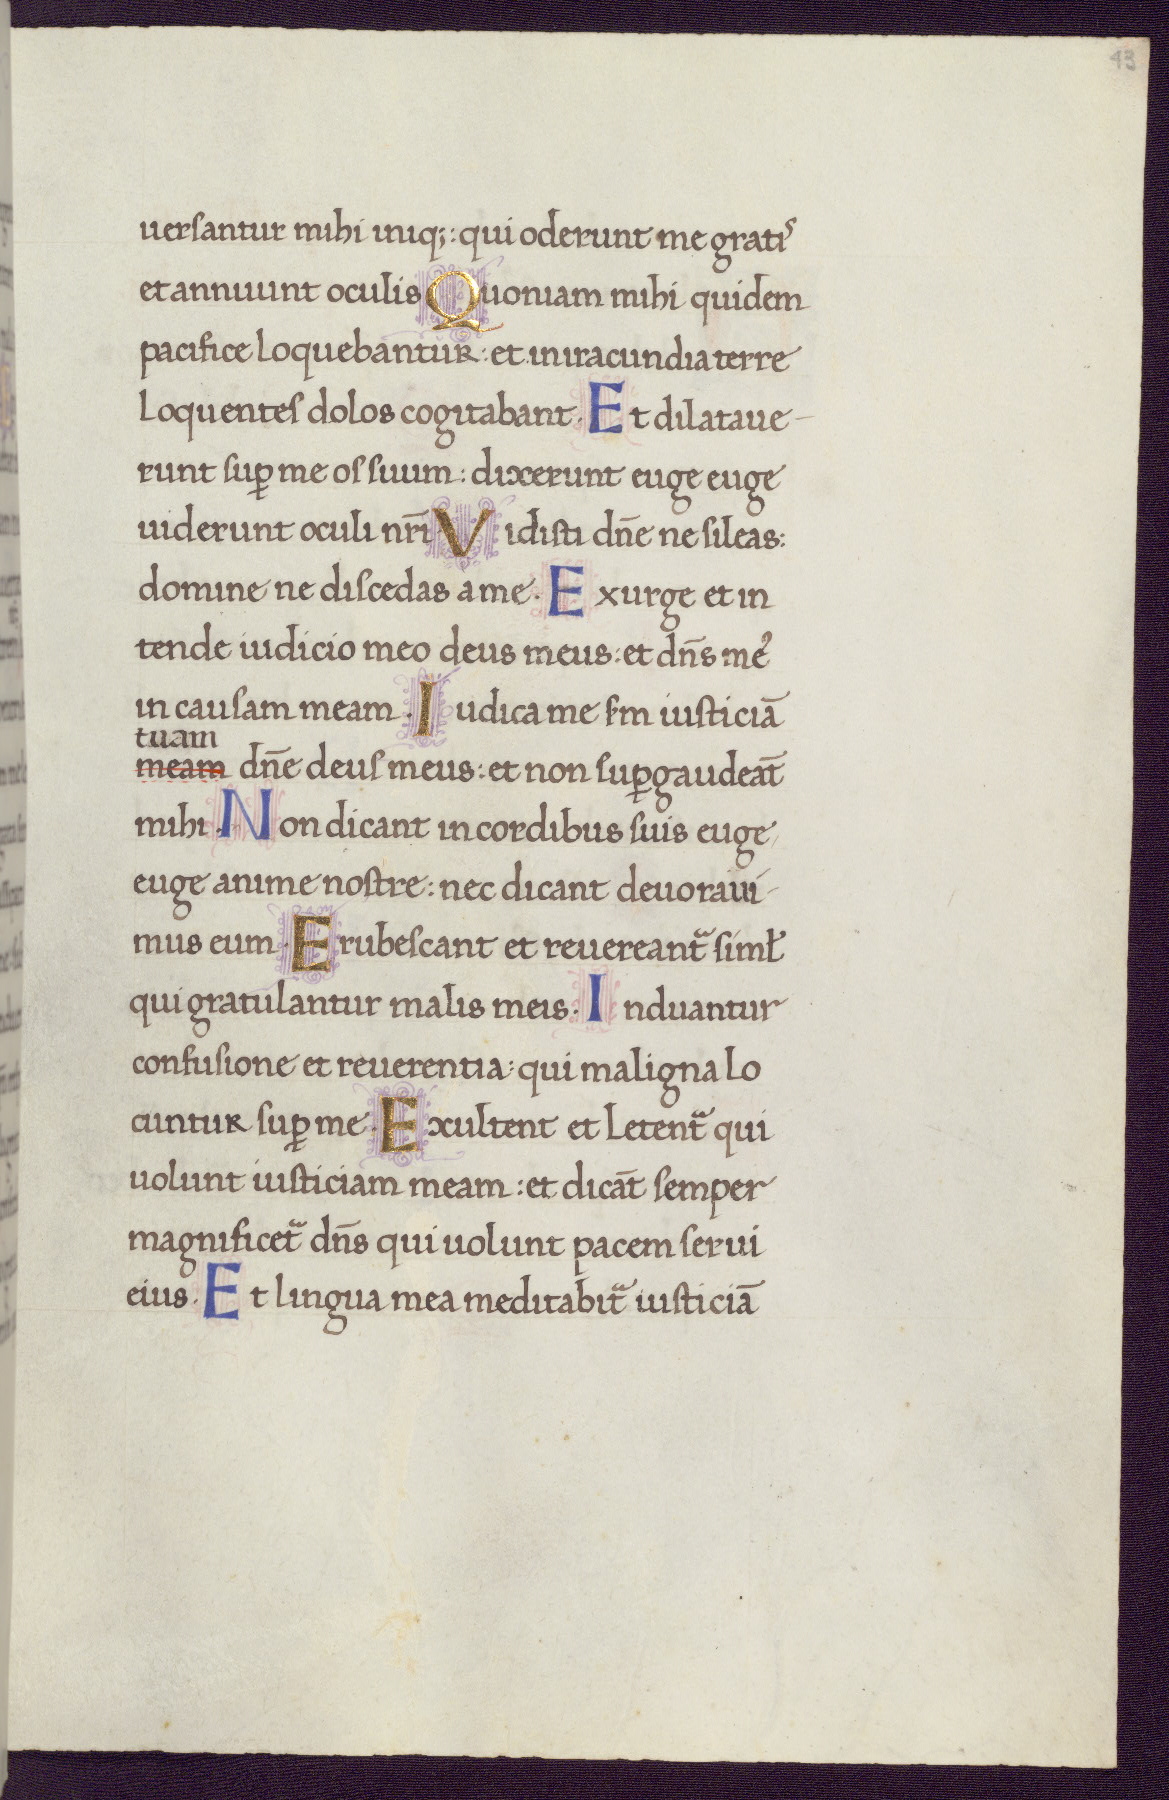 43
uersantur mihi iniq;: qui oderunt me gratis
et annuunt oculis Quoniam mihi quidem
pacifice loquebantur: et in iracundia terre
loquentes dolos cogitabant. Et dilataue-
runt suꝑ me os suum: dixerunt euge euge
uiderunt oculi nr̄i Vidisti dn̄e ne sileas:
domine ne discedas a me. Exurge et in
tende iudicio meo deus meus: et dn̄s meꝰ
in causam meam. Iudica me sm iusticiā
tuam
meam dn̄e deus meus: et non suꝑgaudeāt
mihi. Non dicant in cordibus suis euge
euge anime nostre: nec dicant deuoraui-
mus eum. Erubescant et reuereant᷑ siml̓
qui gratulantur malis meis. Induantur
confusione et reuerentia: qui maligna lo
cuntur suꝑ me. Exultent et letent᷑ qui
uolunt iusticiam meam: et dicāt semper
magnificet᷑ dn̄s qui uolunt pacem serui
eius. Et lingua mea meditabit᷑ iusticiā